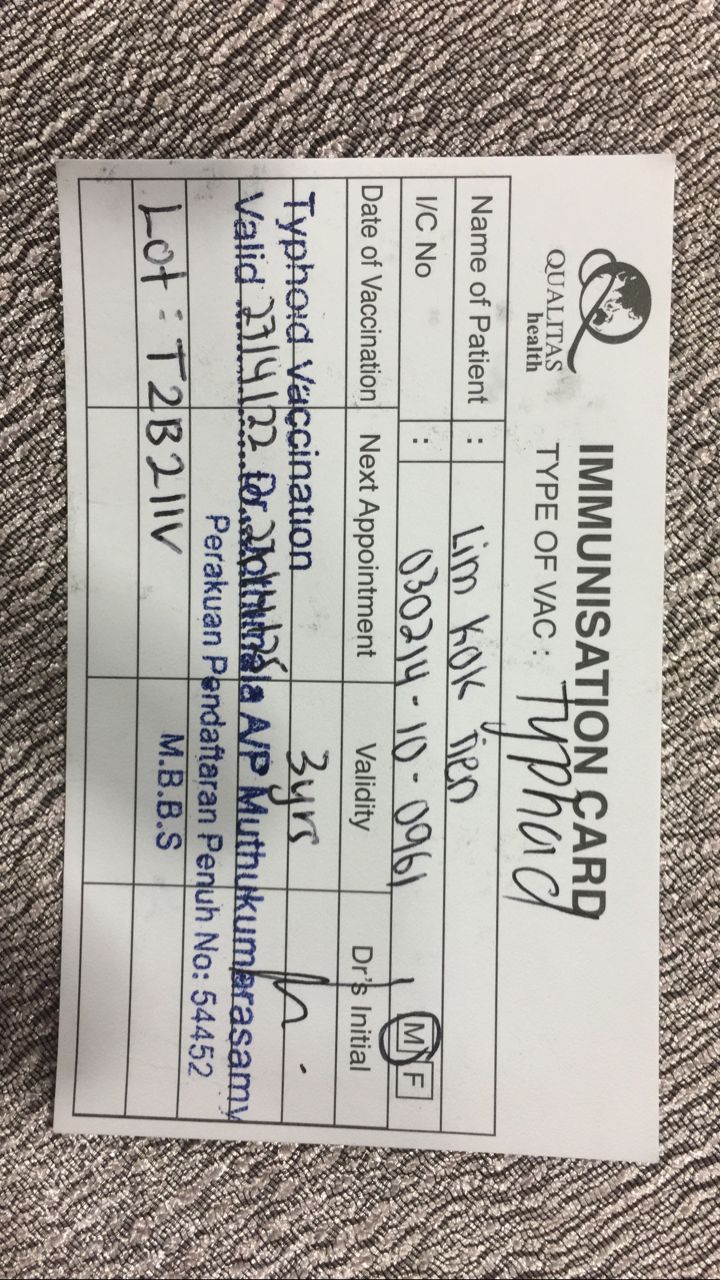 QUALITAS
health
IMMUNISATION CARD
TYPE OF VAC : Typhoid
Name of Patient : Lim Kok Tien
I/C No : 030214-10-0961 M F
Date of Vaccination Next Appointment Validity Dr's Initial
Typhoid Vaccination 3yrs
Valid 27/4/22 Dr. Jothimala A/P Muthukumarasamy
Perakuan Pendaftaran Penuh No: 54452
Lot : T2B211V M.B.B.S